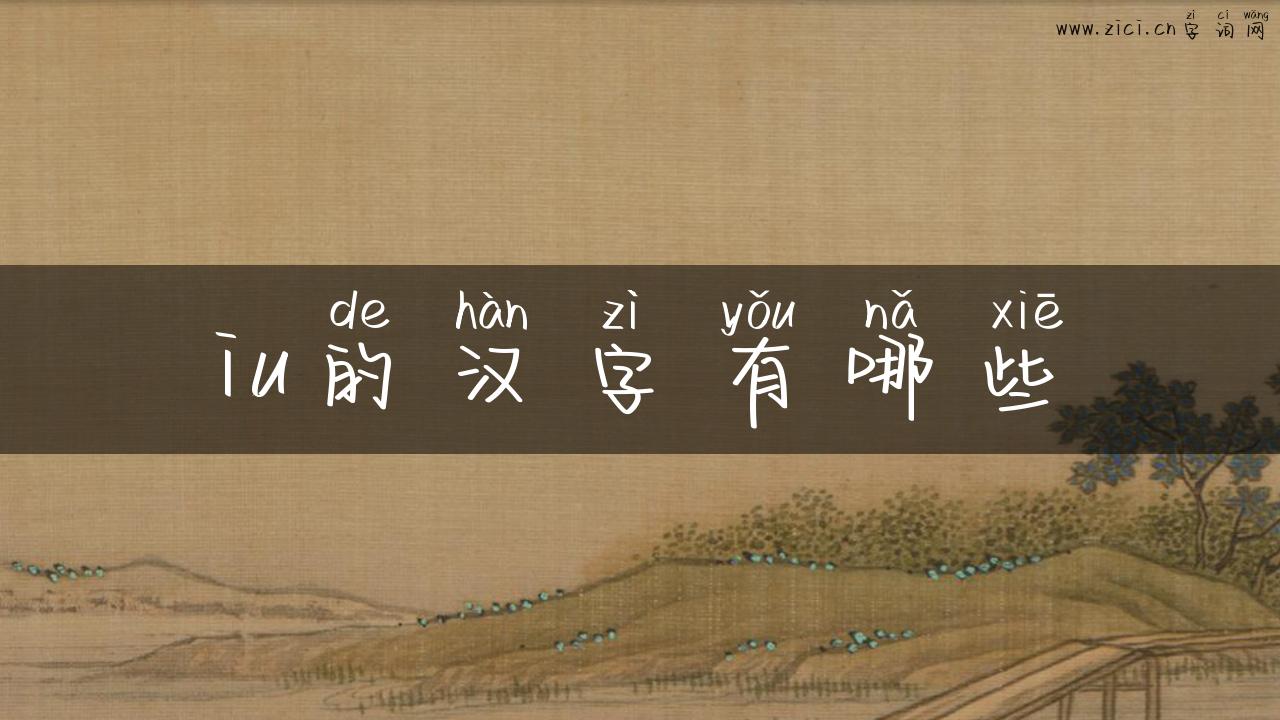 zì cí wǎng
www.zici.cn字词网
de hàn zì yǒu nǎ xiē
īu的汉字有哪些